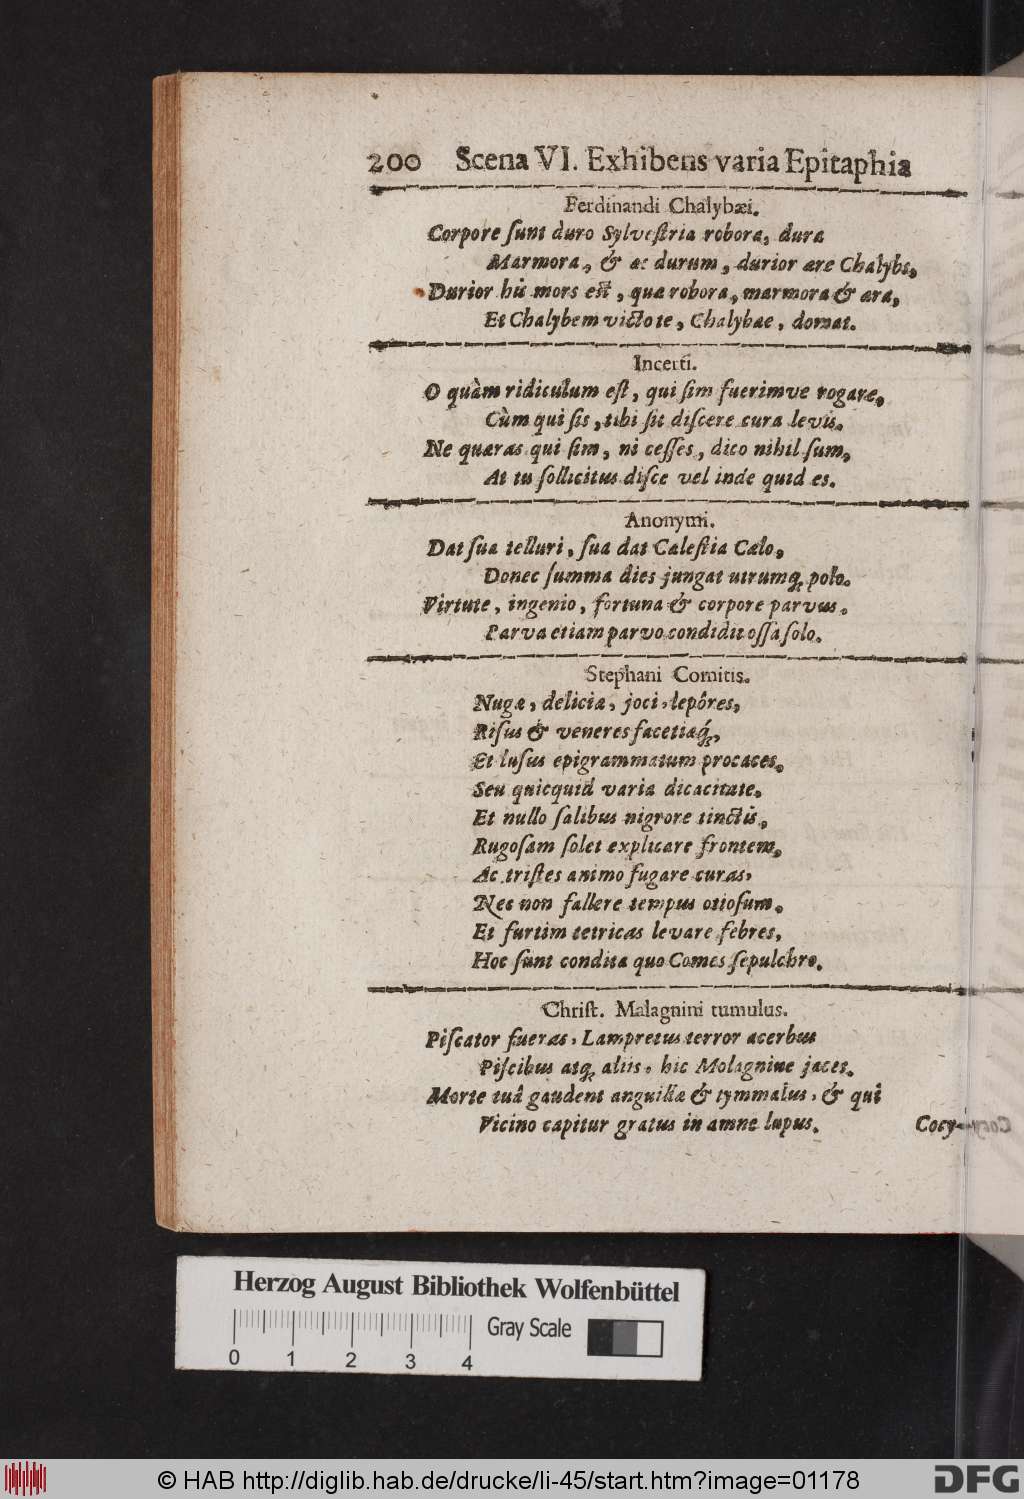 200 Scena VI. Exhibens varia Epitaphia
Ferdinandi Chalybæi.
Corpore ſunt duro Sylveſtria robora, dura
Marmora, & æs durum, durior ære Chalybs,
Durior his mors eſt, quæ robora, marmora & æra,
Et Chalybem victo te, Chalybæe, domat.
Incerti.
O quàm ridiculum eſt, qui ſim fuerimve rogare,
Cùm qui ſis, tibi ſit diſcere cura levis.
Ne quæras qui ſim, ni ceſſes, dico nihil ſum,
At tu ſollicitus diſce vel inde quid es.
Anonymi.
Dat ſua telluri, ſua dat Cæleſtia Cælo,
Donec ſumma dies jungat utrumq́; polo.
Virtute, ingenio, fortuna & corpore parvus.
Parva etiam parvo condidit oſſa ſolo.
Stephani Comitis.
Nugæ, deliciæ, joci, lepôres,
Riſus & veneres facetiæq́;,
Et luſus epigrammatum procaces.
Seu quicquid varia dicacitate,
Et nullo ſalibus nigrore tinctis,
Rugoſam ſolet explicare frontem,
Ac triſtes animo fugare curas,
Nec non fallere tempus otioſum.
Et furtim tetricas levare febres,
Hoc ſunt condita quo Comes ſepulchro.
Chriſt. Malagnini tumulus.
Piſcator fueras, Lampretus terror acerbus
Piſcibus atq́; aliis, hic Molagnine jaces.
Morte tuâ gaudent anguillæ & tymmalus, & qui
Vicino capitur gratus in amne lupus.
Cocy-
Herzog August Bibliothek Wolfenbüttel
Gray Scale
0 1 2 3 4
© HAB http://diglib.hab.de/drucke/li-45/start.htm?image=01178
DFG